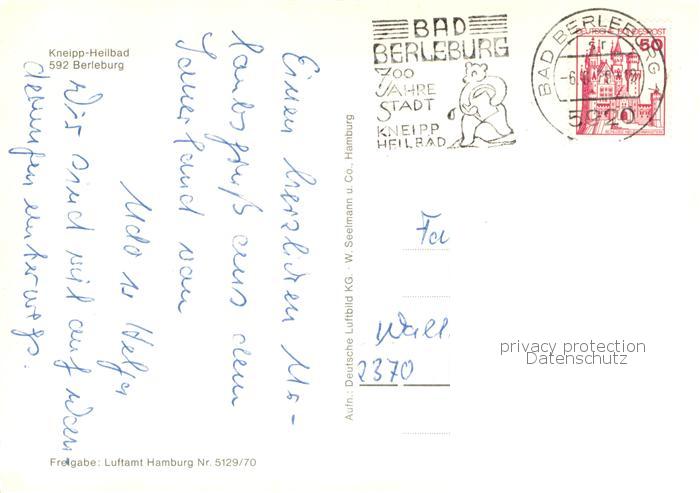 Kneipp-Heilbad
592 Berleburg
Einen herzlichen Ur-
laubsgruß aus dem
Sauerland von
Udo u. Helga
Wir sind mit auf Wan-
derungen unterwegs.
Freigabe: Luftamt Hamburg Nr. 5129/70
Aufn.: Deutsche Luftbild KG. · W. Seelmann u. Co., Hamburg
BAD
BERLEBURG
700
JAHRE
STADT
KNEIPP
HEILBAD
BAD BERLEBURG
5920
DEUTSCHE BUNDESPOST
50
Fa
Wall.
2370
privacy protection
Datenschutz